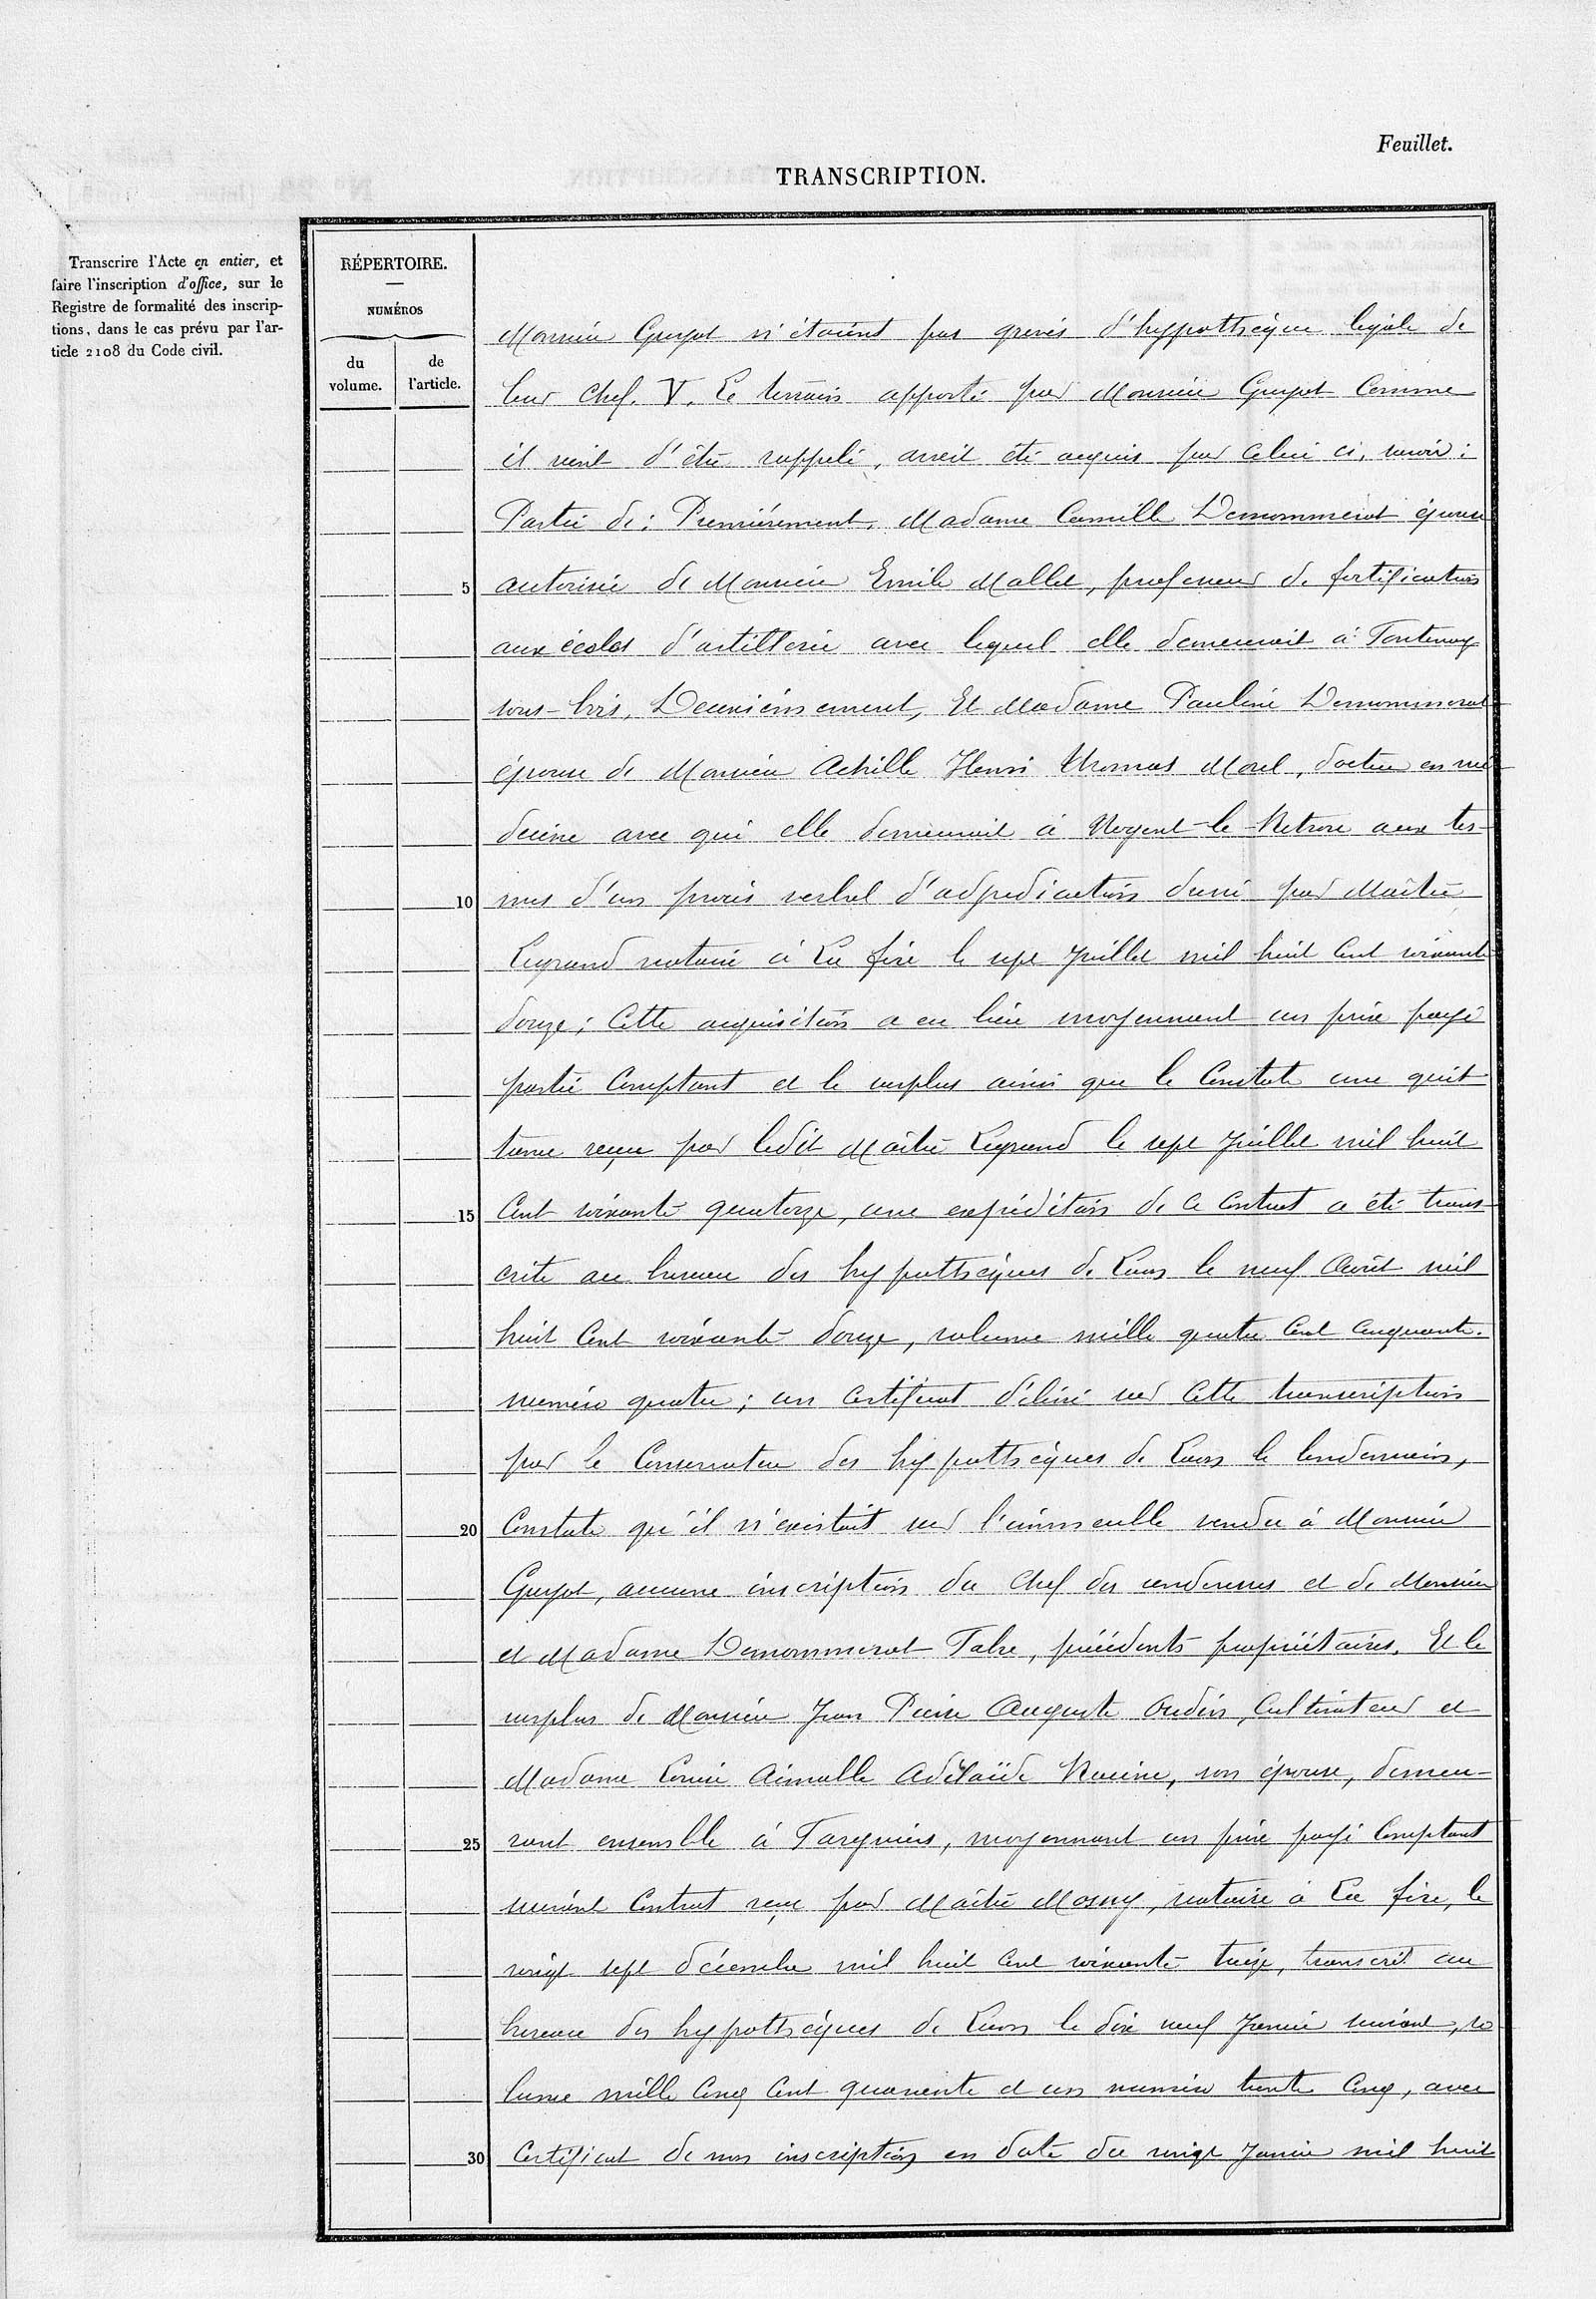 Feuillet.
TRANSCRIPTION.
Transcrire l'Acte en entier, et
faire l'inscription d'office, sur le
Registre de formalité des inscrip-
tions, dans le cas prévu par l'ar-
ticle 2108 du Code civil.
RÉPERTOIRE.
NUMÉROS
du
volume.
de
l'article.
Monsieur Guyot n'étaient pas grevés d'hyppothèque légale de
leur chef. V. Le terrain apporté par Monsieur Guyot Comme
il vient d'être rappelé, avait été acquis par celui ci, savoir :
Partie de : Premièrement, Madame Camille Demommerot épouse
5 autorisée de Monsieur Emile Mallet, professeur de fortifications
aux écoles d'artillerie avec lequel elle demeurait à Fontenay
sous-bois, Deuxièmement, Et Madame Pauline Demommerot
épouse de Monsieur Achille Henri Thomas Morel, docteur en mé-
decine avec qui elle demeurait à Nogent-le-Rotrou aux ter-
10 mes d'un procès verbal d'adjudication dressé par Maître
Legrand notaire à La fère le sept Juillet mil huit Cent soixante
douze ; Cette acquisition a eu lieu moyennant un prix payé
partie Comptant et le surplus ainsi que le Constate une quit
tance reçue par ledit Maître Legrand le sept Juillet mil huit
15 Cent soixante quatorze, une expédition de ce Contrat a été trans-
crite au bureau des hyppothèques de Laon le neuf Août mil
huit Cent soixante douze, volume mille quatre Cent Cinquante.
numéro quatre ; un Certificat délivré sur Cette transcription
par le Conservateur des hyppothèques de Laon le lendemain,
20 Constate qu'il n'existait sur l'immeuble vendu à Monsieur
Guyot, aucune inscription du Chef des venderesses et de Monsieur
et Madame Demommerot Fabre, précédents propriétaires. Et le
surplus de Monsieur Jean Pierre Auguste Oudin, Cultivateur et
Madame Louise Aimable Adélaïde Racine, son épouse, demeu-
25 rant ensemble à Fargniers, moyennant un prix payé Comptant
suivant Contrat reçu par Maître Mosny, notaire à La fère, le
vingt sept décembre mil huit Cent soixante treize, transcrit au
bureau des hyppothèques de Laon le dix neuf Janvier suivant, vo
lume mille Cinq Cent quarante et un numéro trente Cinq, avec
30 Certificat de non inscription en date du vingt Janvier mil huit